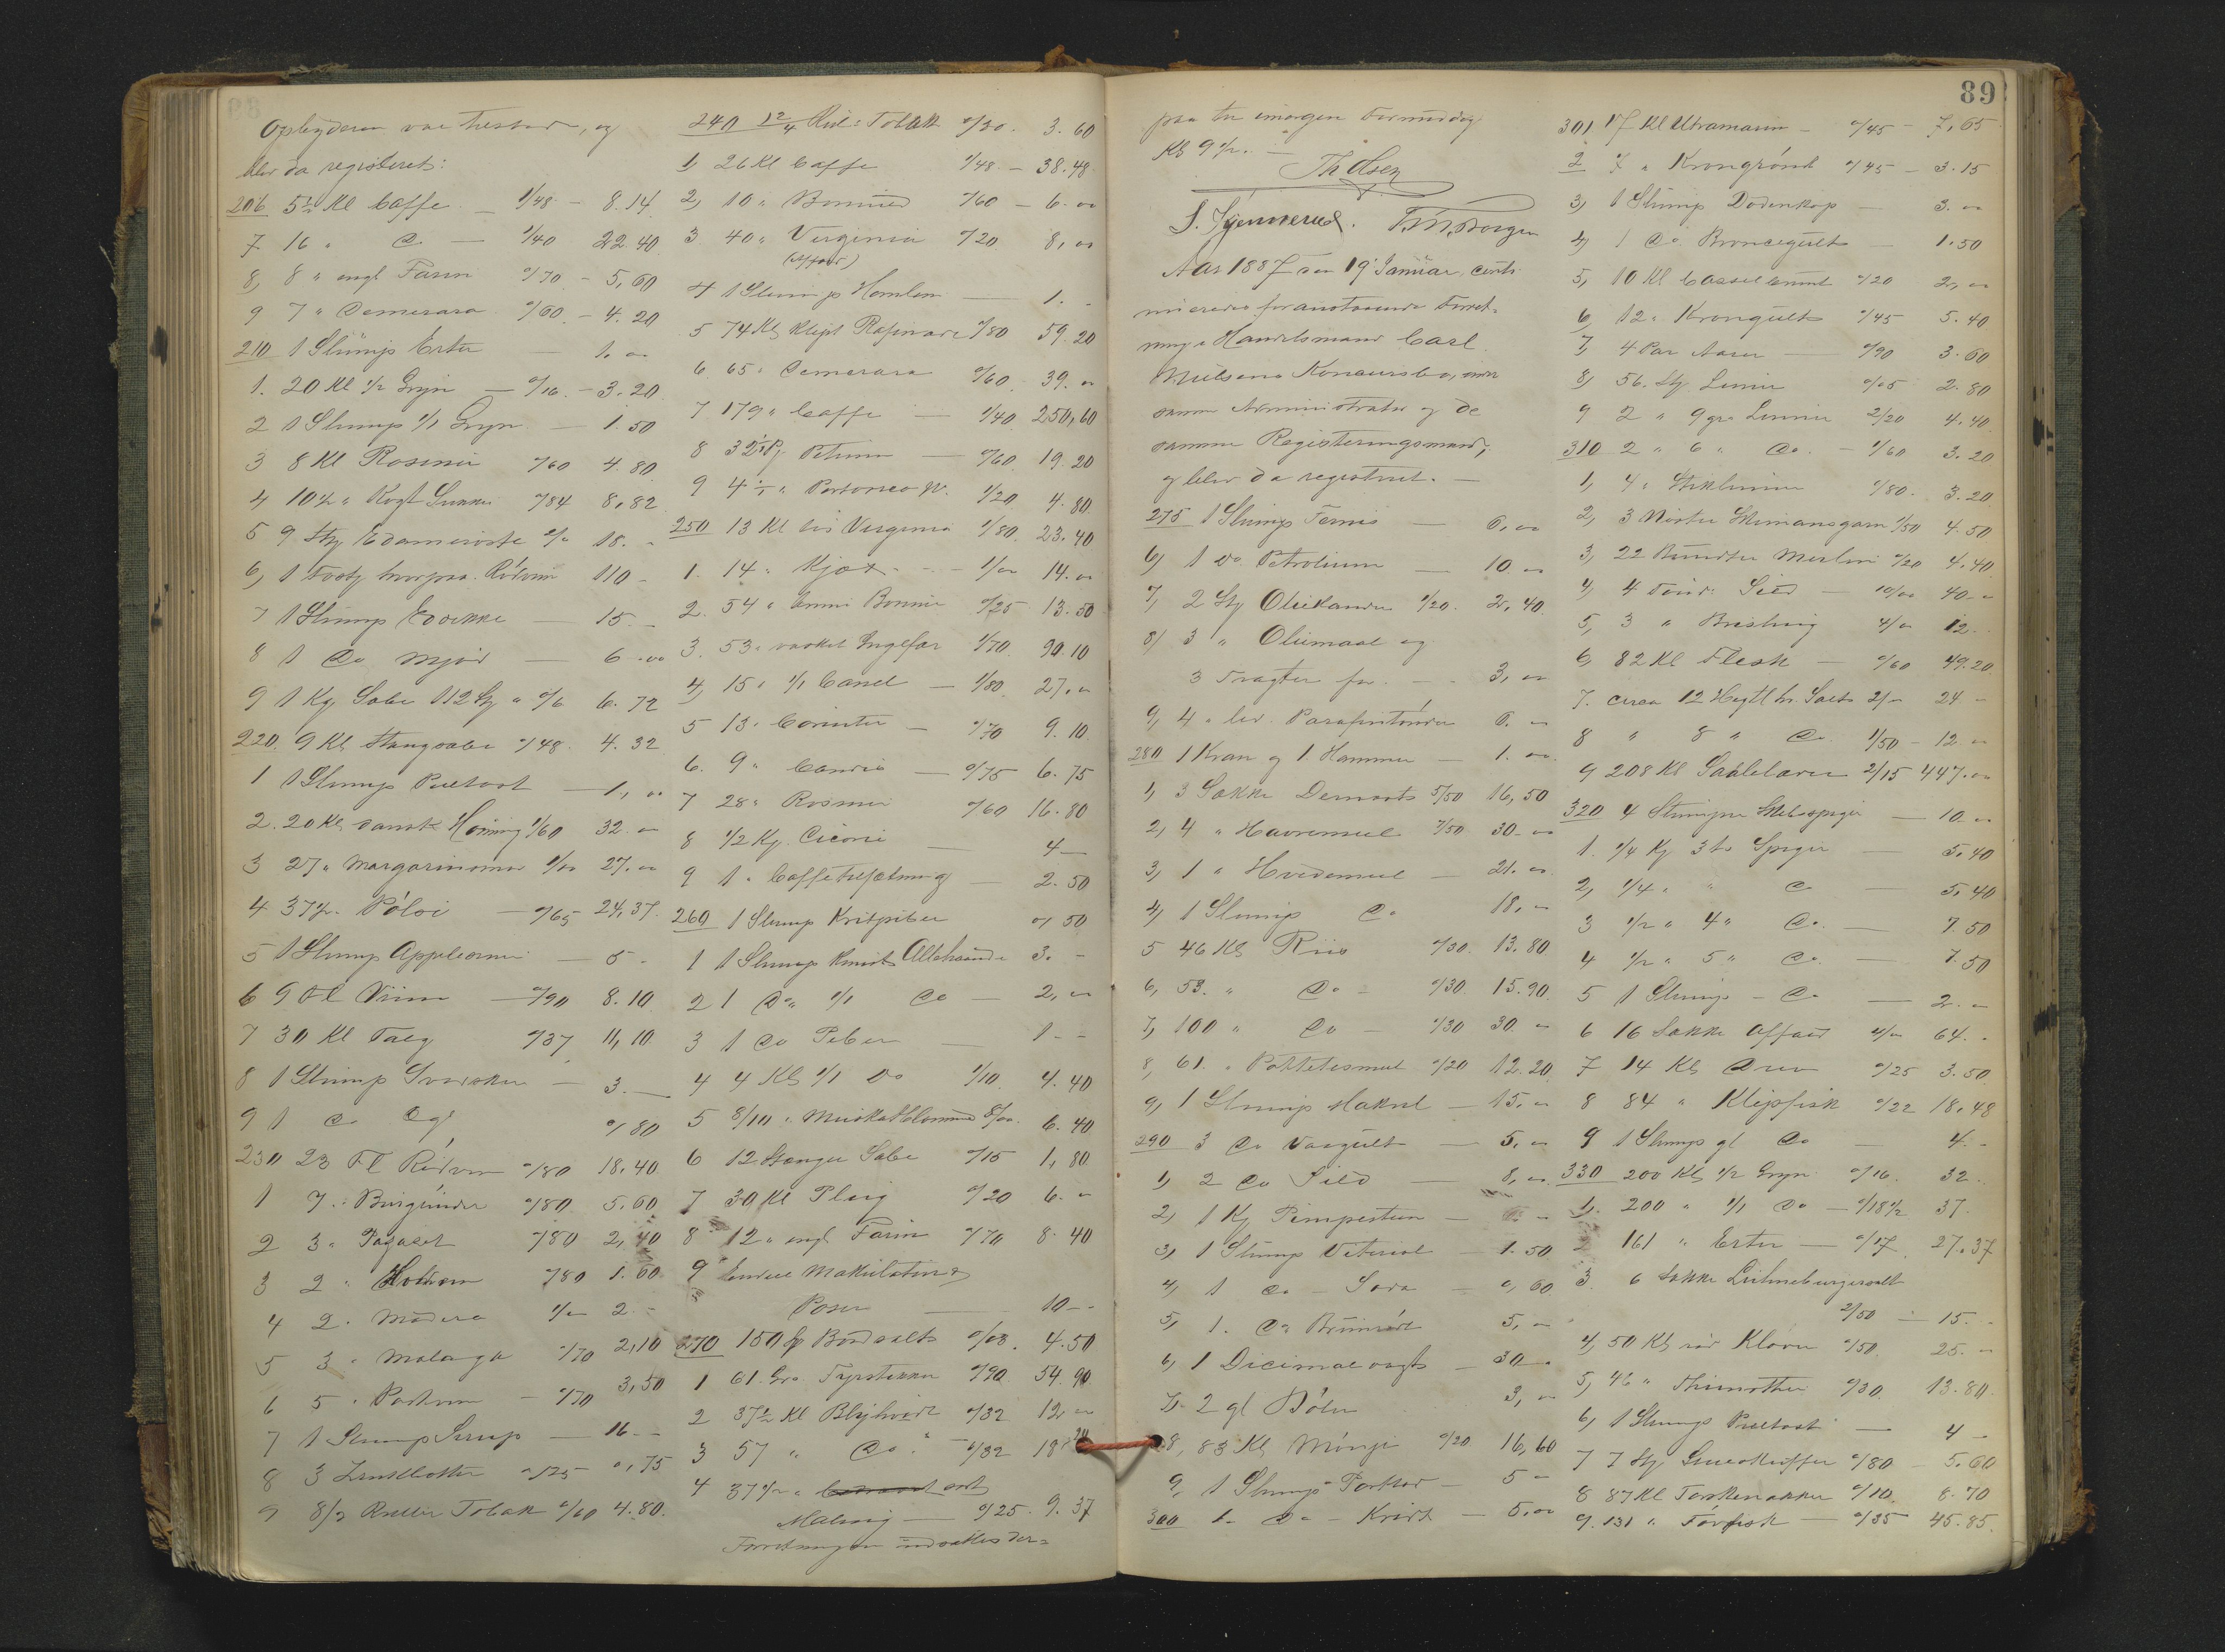 Opbyderen var tilstede, og
blev da registeret:
206 5½ Kl Caffe — 1/48 — 8.14
7 16 " Do. — 1/40 22.40
8, 8 " engl Farin 0/70 — 5,60
9 7 " Demerara 0/60 — 4.20
210 1 Slump Erter — 1.00
1. 20 Kl 1/2 Gryn — 0/16 — 3.20
2 1 Slump 1/1 Gryn — 1.50
3 8 Kl Rosiner 0/60 4.80
4 10½ " Kogt Sukker 0/84 8,82
5 9 Stkr Edameroste 2/00 18. -
6, 1 Fostg hvorpaa Rödvin 110 -
7 1 Slump Eddikke — 15. -
8 1 Do Mjöd — 6.00
9 1 Kg Sæbe 112 Stk a 0/6 6.72
220 9 Kl Stangsæbe 0/48 4.32
1 1 Slump Pultost — 1,00
2. 20 Kl dansk Honning 1/60 32.00
3 27 " Margarinsmør 1/00 27.00
4 37½ " Pölse — 0/65 24,37
5 1 Slump Appelsiner — 5 -
6 9 Fl Viin — 0/90 8.10
7 30 Kl Talg 0/37 11,10
8 1 Slump Svedsker — 3. —
9 1 Do 0/80
230 23 Fl Rödvin 0/80 18.40
1 7 " Burgunder 0/80 5.60
2 3 " 0/80 2,40
3 2 " 0/80 1.60
4 2 " Madera 1/00 2 -
5 3 " Malaga 0/70 2,10
6 5 " Portvin — 0/70 3,50
7 1 Slump Sirup — 16 - -
8 3 0/25 0,75
9 8/2 Ruller Tobak 0/60 4.80.
240 12/4 Rul: Tobak 0/30. 3.60
1, 26 Kl Caffe 1/48 — 38.48
2, 10 " 0/60 — 6.00
3 40 " Virginia 0/20 8,00
(Affald)
4 1 Slump Homlen — 1. -
5 74 Kl klipt Rafinade 0/80 59.20
6 65 " Demerara 0/60 39.00
7 179 " Caffe — 1/40 250,60
8 32 Petum — 0/60 19.20
9 4 " Portorico 1/20 4.80
250 13 Kl lös Virginia 1/80 23.40
1. 14 " Kjox - - 1/00 14.00
2. 54 " Bönner 0/25 13.50
3. 53 " vasket Ingefær 1/70 90.10
4, 15 " 1/1 Canel — 1/80 27.00
5 13 " Corinter — 0/70 9.10
6. 9 " Candis — 0/75 6.75
7 28 " Rosiner 0/60 16.80
8 1/2 Kg. Cicorie — 4 —
9 1 " Caffetilsætning — 2.50
260 1 Slump Kritpiber 0/50
1 1 Slump knust Allehaande 3. -
2 1 Do 1/1 Do — 2,00
3 1 Do Peber — 1 - -
4 4 Kl 1/1 Do 1/10 4.40
5 8/10 " Muskatblomme 8/00 6.40
6 12 Stænger Sæbe 0/15 1,80
7 30 Kl 0/20 6.00
8 12 " engl Farin 0/70 8.40
9 Endeel Makulatur &
Poser — 10 - -
270 150 Bordsalt 0/03 4.50
1 61 Gro. Fyrstikker 0/90 54.90
2 37½ Kl Blyhvidt 0/32 12.00
3 57 " Do. — 0/32 18
4 37½ " sort
Maling — 0/25 9.37
Forretningen udsattes der=
89
paa til imorgen Formiddag
Kl 9½. —
Th Olsen
S. Gjennerud. F. M. Borgen
Aar 1887 den 19 Januar, conti-
nueredes foranstaaende Forret-
ning i Handelsmand Carl
Nielsens Konkursbo, under
samme Administrator og de
samme Registeringsmænd,
og blev da registeret. —
275 1 Slump Fernis — 6,00
6, 1 Do Petrolium — 10.00
7, 2 Stk Oliekander 1/20 2,40
8, 3 " Oliemaal og
3 Tragter for - - 3,00
9, 4 " led. Parafintönder 6.00
280 1 Kran og 1 Hammer — 1.00
1, 3 Sække 5/50 16,50
2, 4 " Havremeel 7/50 30.00
3, 1 " Hvedemeel — 21.00
4, 1 Slump Do 18,00
5 46 Kl Riis 0/30 13.80
6, 53 " Do - 0/30 15.90
7, 100 " Do - 0/30 30.00
8, 61 " Pottetesmel 0/20 12.20
9, 1 Slump Makrel — 15,00
290 3 Do Vaagult — 5,00
1, 2 Do Sild — 8,00
2, 1 Kg Pimpesteen —
3, 1 Slump Viteriol — 1.50
4, 1 Do - Soda — 0,60
5, 1. Do Brunrödt 5,00
6, 1 Dicimalvægt — 30 -
7. 2 gl 3,00
8, 83 Kl Mönje 0/20 16,60
9, 1 Slump Porttor — 5 -
300 1 - Do - Kridt — 5,00
301 17 Kl Ultramarin — 0/45 — 7,65
2 7 " Krongrönt 0/45 — 3.15
3, 1 Slump Dodenkop — 3.00
4, 1 Do. Broncegult — 1.50
5, 10 Kl Casselbrunt 0/20 2,00
6, 12 " Krongult 0/45 5.40
7, 4 Par Aarer — 0/90 3.60
8, 56 Stk Liner 0/05 2.80
9 2 " 9 gr. Liner 2/20 4.40
310 2 " 6 " Do. — 1/60 3.20
1, 4 " Stikliner 0/80 3.20
2, 3 Nöster Skimansgarn 1/50 4.50
3, 22 Bundter Merlin 0/20 4.40
4, 4 Tönd: Sild — 10/00 40 -
5, 3 " Brisling 4/00 12 -
6, 82 Kl Flesk — 0/60 49.20
7. circa 12 Hegtl. hv. Salt 2/00 24 -
8 " 8 " Do. 1/50 — 12.00
9 208 Kl Saalelæder 2/15 447.00
320 4 Slumper Skibsspiger — 10.00
1. 1/4 Kg 3 to Spiger — 5.40
2, 1/4 " " Do — 5.40
3 1/2 " 4 " Do. — 7.50
4 1/2 " 5 " Do. — 7.50
5 1 Slump - Do — 2.00
6 16 Sække Affald 4/00 64. -
7 14 Kl Drev 0/25 3.50
8 84 " Klipfisk 0/22 18.48
9 1 Slump gl Do — 4. -
330 200 Kl 1/2 Gryn 0/16 32 -
1. 200 " 1/1 Do — 0/18½ 37 -
2 161 " Erter — 0/17 27.37
3. 6 Sække Lüneburgersalt
2/50 — 15. -
4, 50 Kl röd Klöver 0/50 25. -
5, 46 " Thimothei 0/30 13.80
6, 1 Slump Pultost — 4 -
7 7 Stk Sneskuffer 0/80 — 5.60
8 87 Kl Torskenakker 0/10 8.70
9. 131 " Törfisk — 0/35 45.85